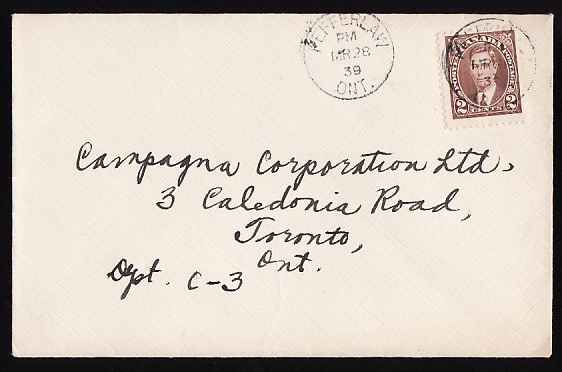 PEFFERLAW
PM
MR 28
39
ONT.
POSTES CANADA POSTAGE
2 CENTS 2
Campagna Corporation Ltd.,
3 Caledonia Road,
Toronto,
Ont.
Dpt. C-3